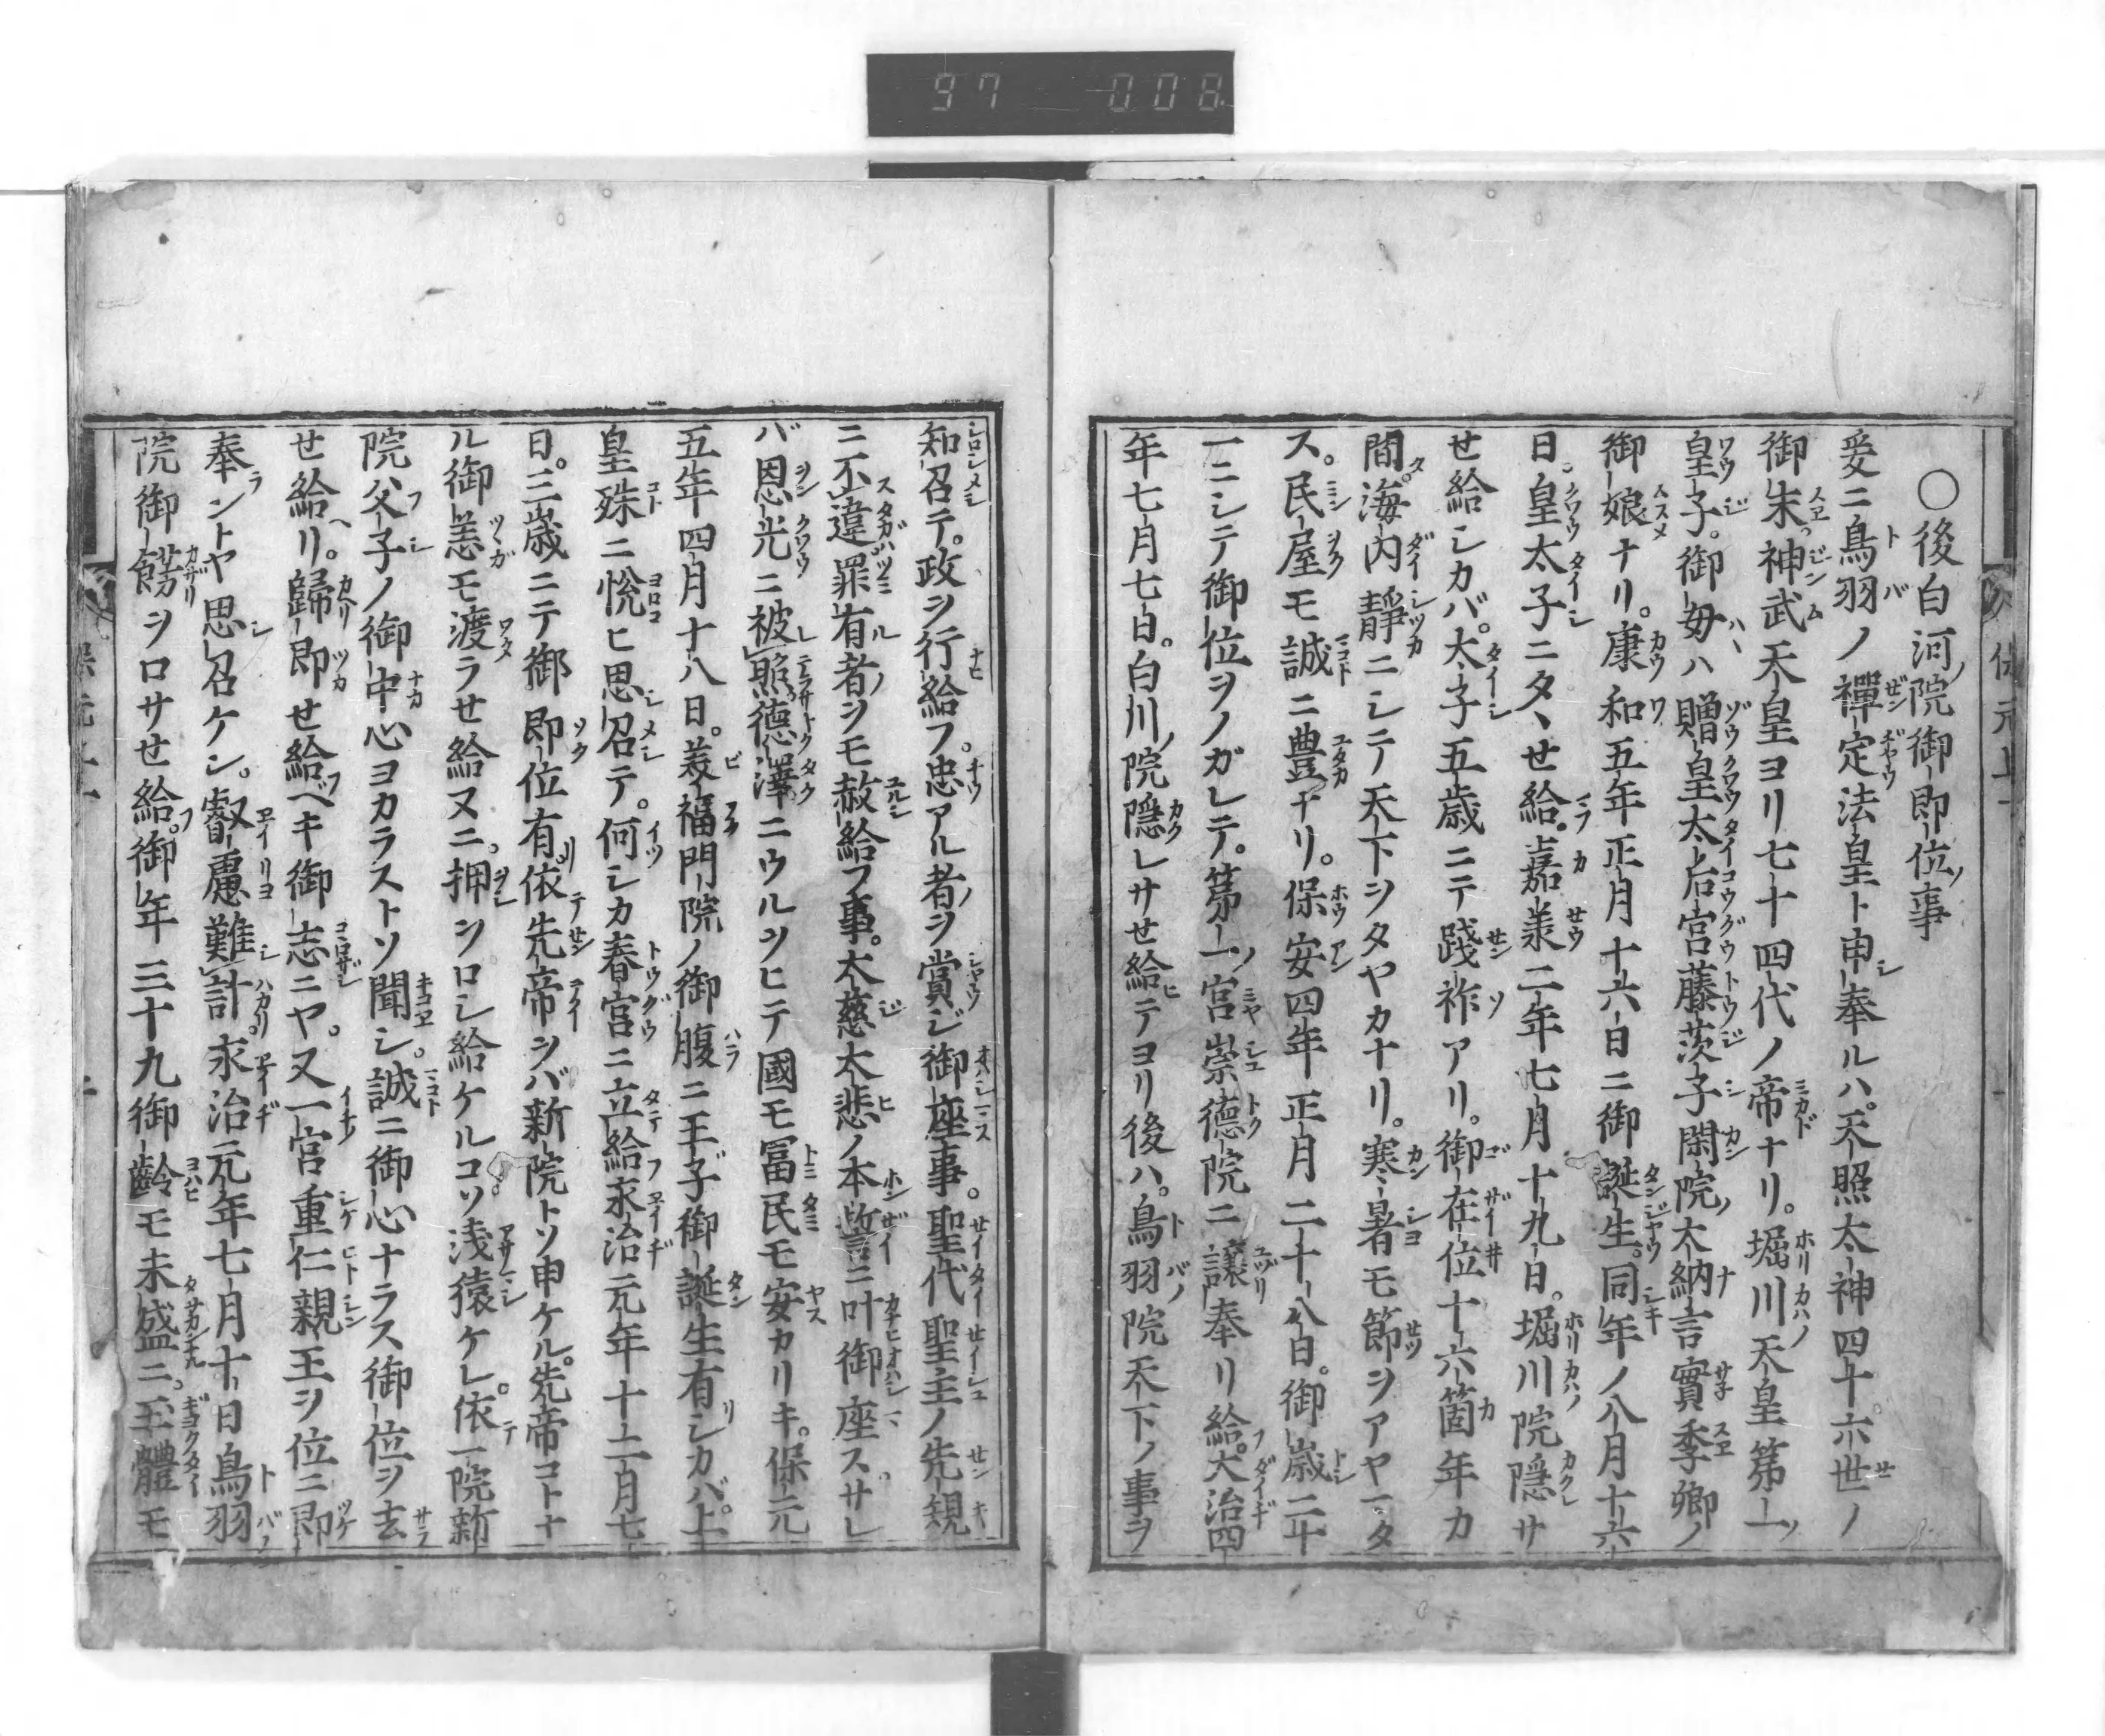 97 008
〇後白河ノ院御即位ノ事
爰ニ鳥羽ノ禪定法皇ト申シ奉ルハ。天照太神四十六世ノ
御末。神武天皇ヨリ七十四代ノ帝ナリ。堀川天皇第一ノ
皇子。御母ハ贈皇太后宮藤茨子閑院ノ大納言實季卿ノ
御娘ナリ。康和五年正月十六日ニ御誕生。同年ノ八月十六
日。皇太子ニタヽせ給フ。嘉羕二年七月十九日。堀川ノ院隠レサ
せ給シカバ。太子五歳ニテ踐祚アリ。御在位十六箇年カ
間タ。海内静ニシテ天下ヲタヤカナリ。寒暑モ節ヲアヤマタ
ス。民屋モ誠ニ豊ナリ。保安四年正月二十八日。御歳二十
一ニシテ御位ヲノガレテ。第一ノ宮崇徳院ニ譲リ奉リ給フ。大治四
年七月七日。白川ノ院隠レサせ給ヒテヨリ後ハ。鳥羽ノ院天下ノ事ヲ
知召テ。政ヲ行ナヒ給フ。忠アル者ノヲ賞ジ御座事。聖代聖主ノ先規
ニ不違罪有ル者ノヲモ赦シ給フ事。大慈大悲ノ本誓ニ叶ヒ御座スサレ
バ恩光ニ被レ照徳澤ニウルヲヒテ國モ冨民モ安カリキ。保元
五年四月十八日。美福門院ノ御腹ニ王子御誕生有リシカバ。上
皇殊ニ悅ヒ思シ召テ。何シカ春宮ニ立給フ永治元年十二月七
日。三歳ニテ御即位有リ。依テ先帝ヲバ新院トソ申ケル。先帝コトナ
ル御恙モ渡ラせ給ヌニ。押ヲロシ給ケルコソ浅猿ケレ。依テ一院新
院父子ノ御中心ヨカラストソ聞シ。誠ニ御心ナラス御位ヲ去
せ給ヘリ。歸リ即せ給フベキ御志ニヤ。又一宮重仁親王ヲ位ニ即ケ
奉ラントヤ思シ召ケン。叡慮難シ計。永治元年七月十日鳥羽ノ
院御餝ヲロサせ給フ。御年三十九御齡モ未タ盛ニ。玉體モ